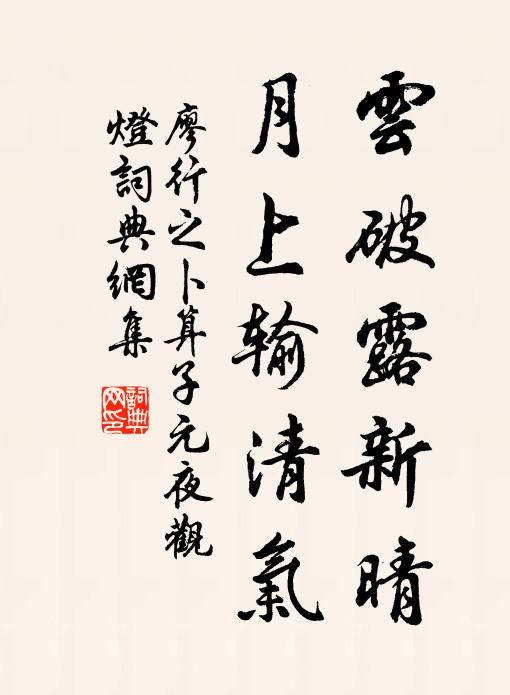 雲破露新晴
月上输清氣
廖行之卜算子元夜觀
燈詞典網集
詞典
网印